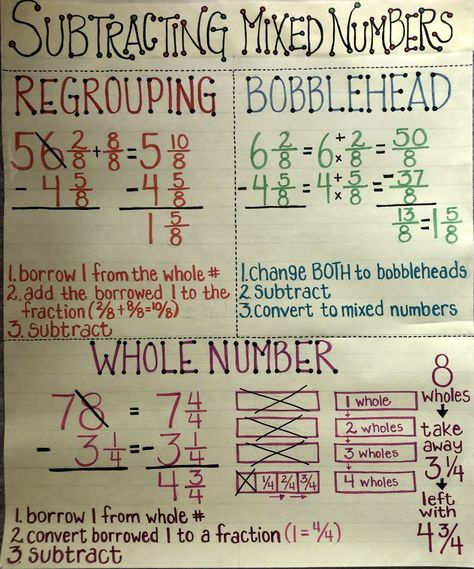 SUBTRACTING MIXED NUMBERS
REGROUPING
56 2/8 + 8/8 = 5 10/8
- 4 5/8 - 4 5/8
1 5/8
1. borrow 1 from the whole #
2. add the borrowed 1 to the
fraction (2/8 + 8/8 = 10/8)
3. subtract
BOBBLEHEAD
6 2/8 = 6 + × 2/8 = 50/8
- 4 5/8 = 4 + × 5/8 = - 37/8
13/8 = 1 5/8
1. change BOTH to bobbleheads
2. subtract
3. convert to mixed numbers
WHOLE NUMBER
78 = 7 4/4
- 3 1/4 = - 3 1/4
4 3/4
1. borrow 1 from whole #
2. convert borrowed 1 to a fraction (1 = 4/4)
3. subtract
1/4 2/4 3/4
1 whole
2 wholes
3 wholes
4 wholes
8
wholes
take
away
3 1/4
left
with
4 3/4